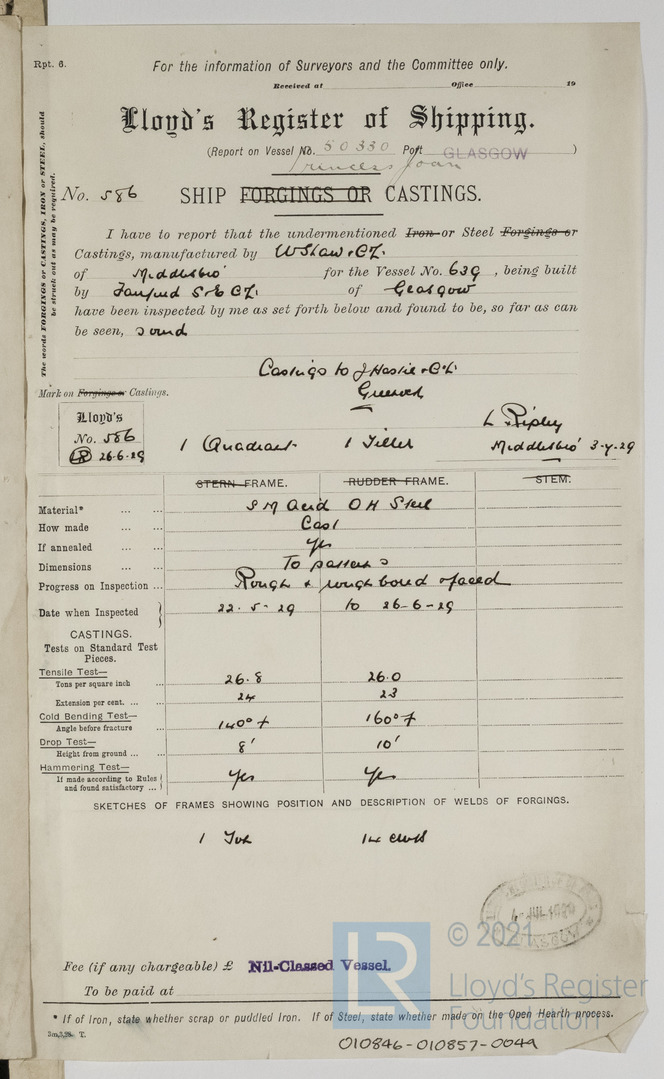 Rpt. 6.
For the information of Surveyors and the Committee only.
Received at Office 19
Lloyd's Register of Shipping.
(Report on Vessel No. 50330 Port GLASGOW )
Princess Joan
No. 586 SHIP FORGINGS OR CASTINGS.
The words FORGINGS or CASTINGS, IRON or STEEL, should
be struck out as may be required.
I have to report that the undermentioned Iron or Steel Forgings or
Castings, manufactured by W Shaw & Co.
of Middlesbro' for the Vessel No. 639, being built
by Fairfield S. & E Co. of Glasgow
have been inspected by me as set forth below and found to be, so far as can
be seen, sound
Castings to J Hastie & Co.
Greenock
Mark on Forgings or Castings.
Lloyd's
No. 586
LR 26.6.29
1 Quadrant 1 Tiller
L Ripley
Middlesbro' 3-7-29
STERN FRAME. RUDDER FRAME. STEM.
Material* ... ... S M Acid O H Steel
How made ... ... Cast
If annealed ... ... Yes
Dimensions ... ... To pattern
Progress on Inspection ... Rough & rough bored & faced
Date when Inspected 22.5.29 to 26-6-29
CASTINGS.
Tests on Standard Test
Pieces.
Tensile Test—
Tons per square inch ... 26.8 26.0
Extension per cent. ... ... 24 23
Cold Bending Test—
Angle before fracture ... 140° + 160° +
Drop Test—
Height from ground ... ... 8' 10'
Hammering Test—
If made according to Rules
and found satisfactory ... Yes Yes
SKETCHES OF FRAMES SHOWING POSITION AND DESCRIPTION OF WELDS OF FORGINGS.
1 Ton 14 cwts
4-JUL 1929
GLASGOW
Fee (if any chargeable) £ Nil-Classed Vessel.
To be paid at
© 2021
LR
Lloyd's Register
Foundation
* If of Iron, state whether scrap or puddled Iron. If of Steel, state whether made on the Open Hearth process.
3m,3,28. T.
010846-010857-0049